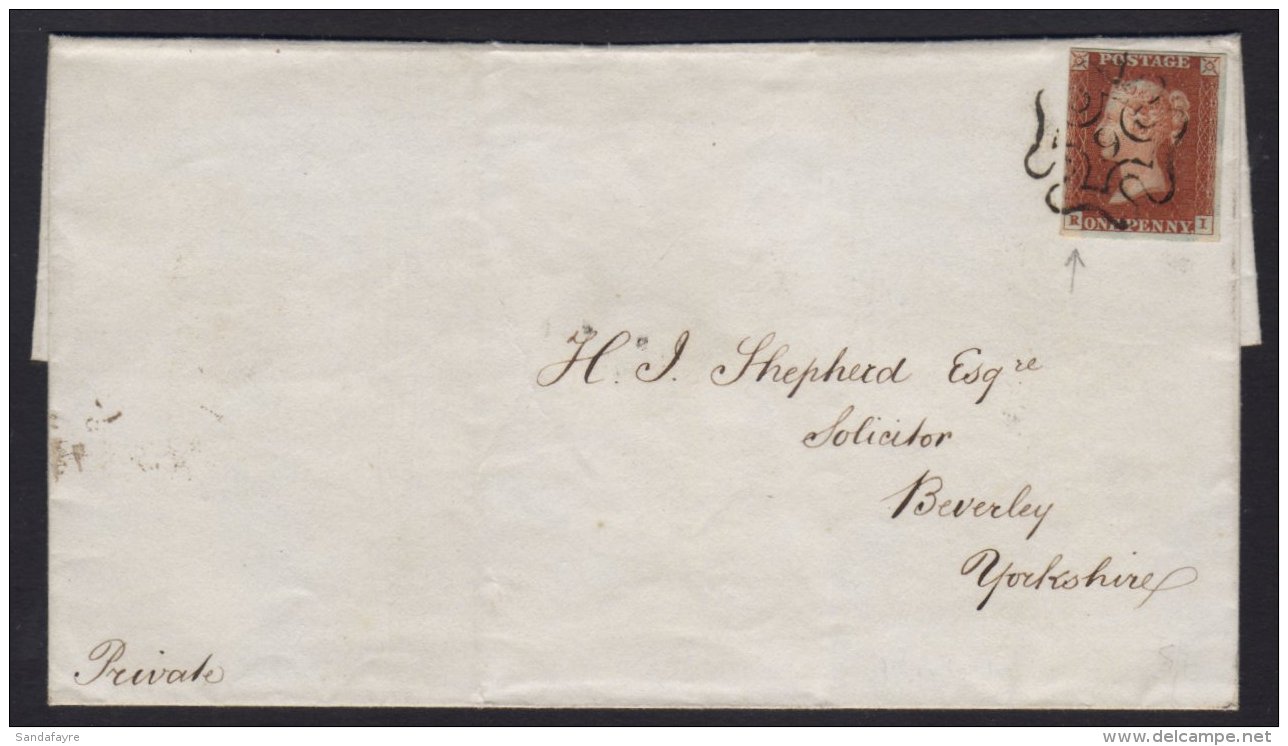 POSTAGE
6
R ONE PENNY. I
H. J. Shepherd Esqre
Solicitor
Beverley
Yorkshire
Private
Sandafayre
www.delcampe.net